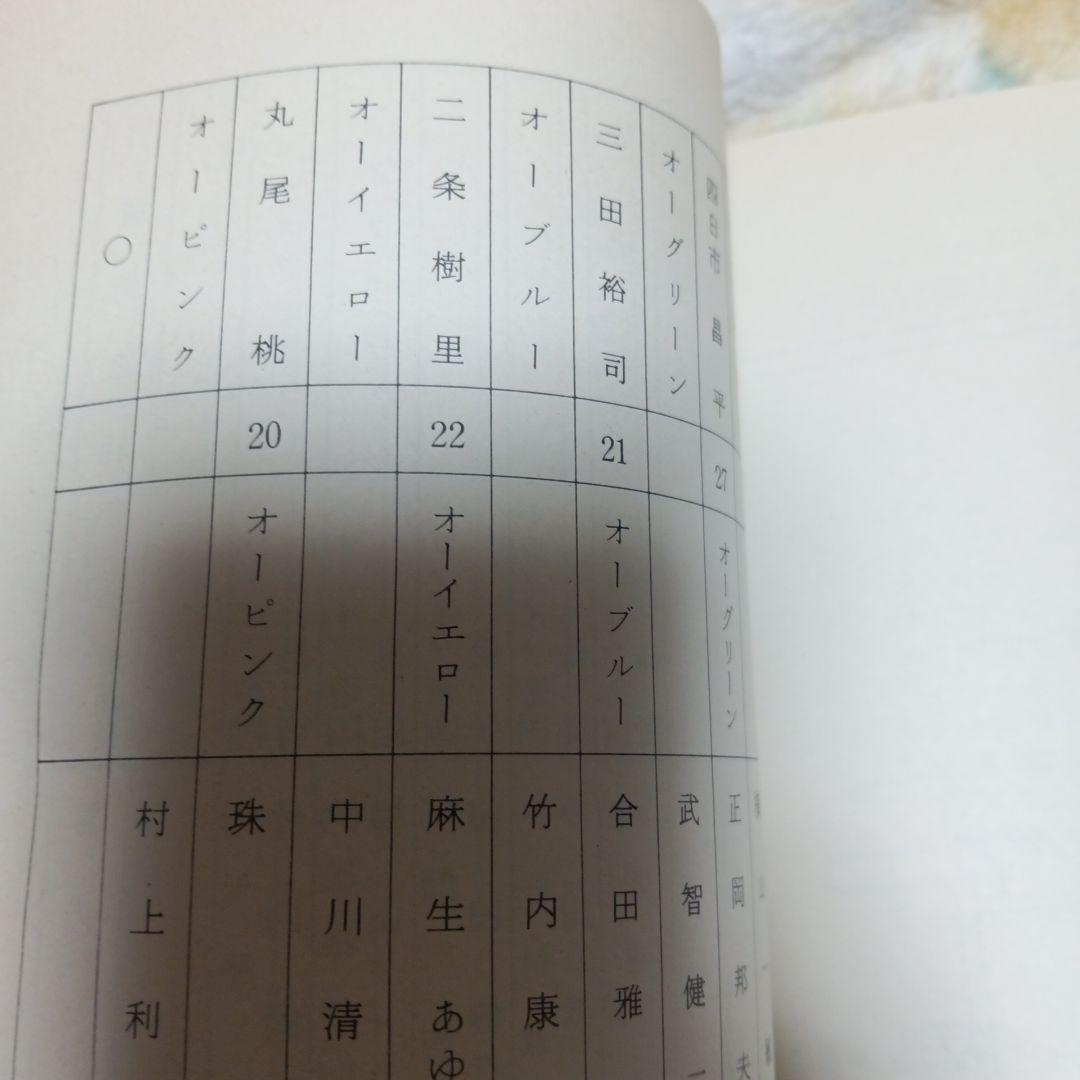 四日市昌平 27 オーグリーン 正岡邦夫
オーグリーン 武智健
三田裕司 21 オーブルー 合田雅
オーブルー 竹内康
二条樹里 22 オーイエロー 麻生あゆ
オーイエロー 中川清
丸尾桃 20 オーピンク 珠
オーピンク 村上利
○